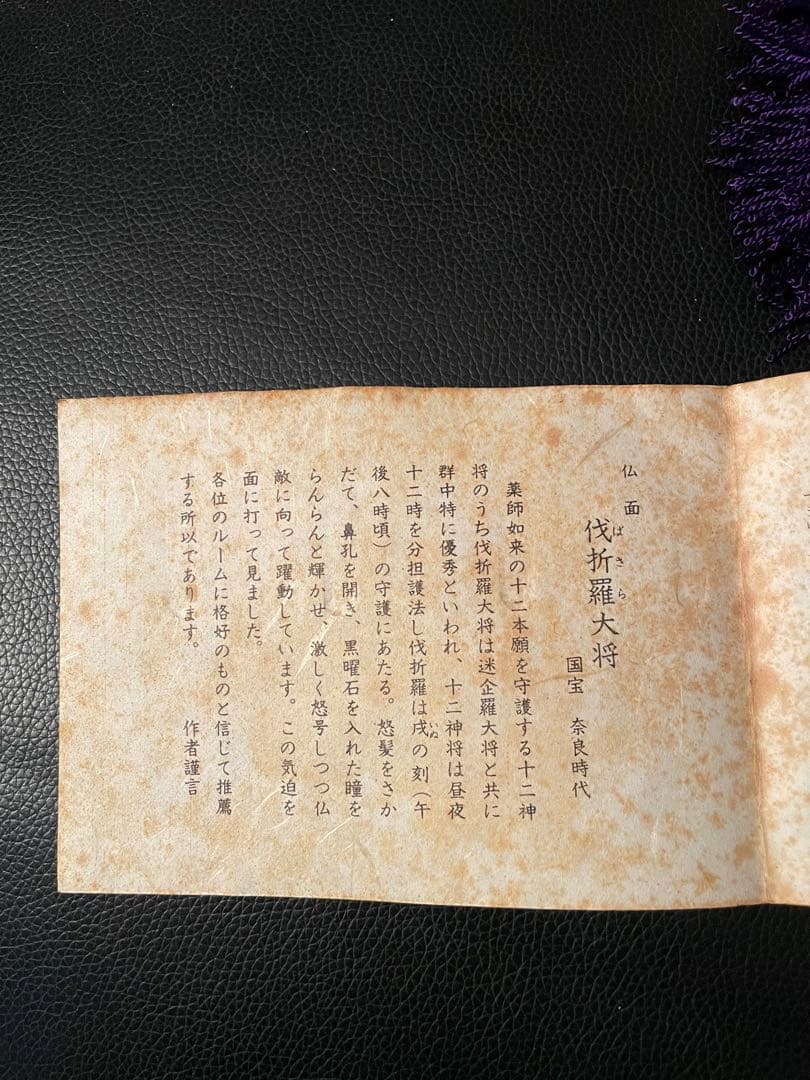 仏面
伐折羅大将
ばさら
国宝 奈良時代
薬師如来の十二本願を守護する十二神
将のうち伐折羅大将は迷企羅大将と共に
群中特に優秀といわれ、十二神将は昼夜
十二時を分担護法し伐折羅は戌の刻(午
いぬ
後八時頃)の守護にあたる。怒髪をさか
だて、鼻孔を開き、黒曜石を入れた瞳を
らんらんと輝かせ、激しく怒号しつつ仏
敵に向って躍動しています。この気迫を
面に打って見ました。
各位のルームに格好のものと信じて推薦
する所以であります。 作者謹言